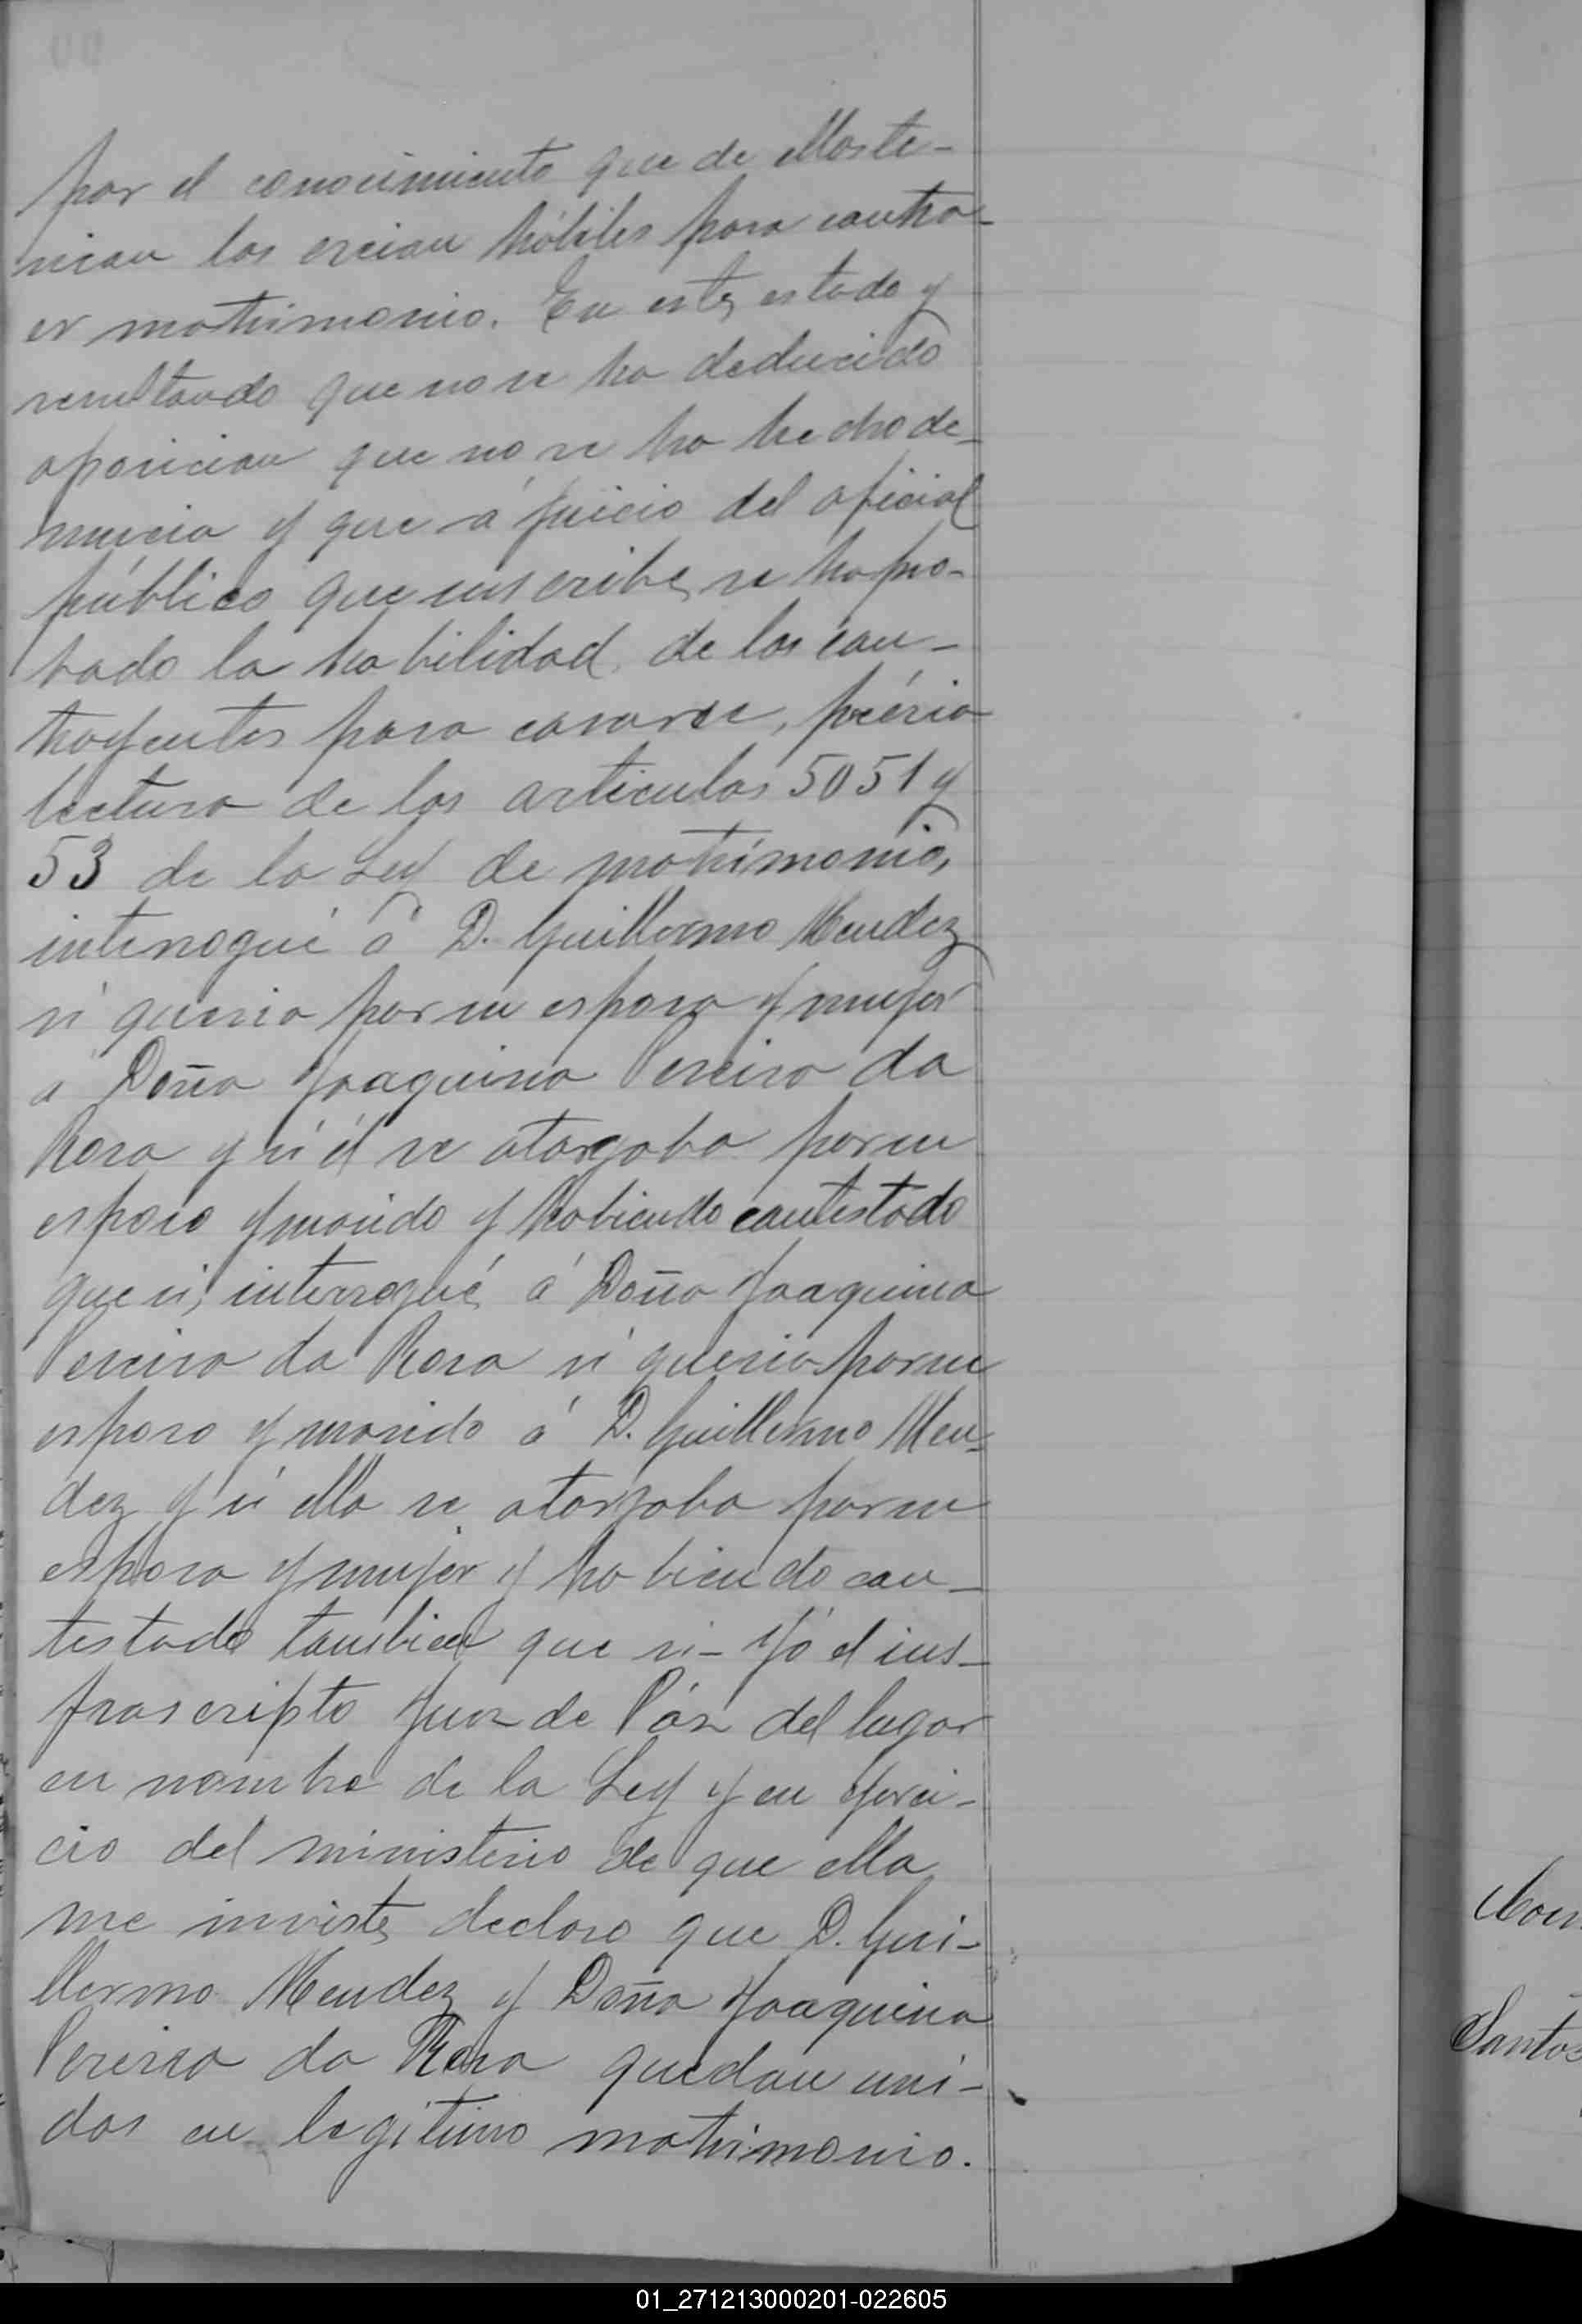 por el conocimiento que de ellos te-
nian los creian hábiles para contra-
er matrimonio. En este estado y
resultando que no se ha deducido
oposicion que no se ha hecho de-
nuncia y que á juicio del oficial
público que suscribe, se ha pro-
bado la habilidad de los con-
trayentes para casarse, prévia
lectura de los articulos 50 51 y
53 de la Ley de matrimonio,
interrogué á D. Guillermo Mendez
si queria por su esposa y mujer
á Doña Joaquina Pereira da
Rosa y si él se otorgaba por su
esposo y marido y habiendo contestado
que si, interrogué á Doña Joaquina
Pereira da Rosa si queria por su
esposo y marido á D. Guillermo Men-
dez y si ella se otorgaba por su
esposa y mujer y habiendo con-
testado tambien que si- Yó el ins-
frascripto Juez de Páz del lugar
en nombre de la Ley y en ejerci-
cio del ministerio de que ella
me inviste, declaro que D. Gui-
llermo Mendez y Doña Joaquina
Pereira da Rosa quedan uni-
dos en legítimo matrimonio.
Santos
01_271213000201-022605